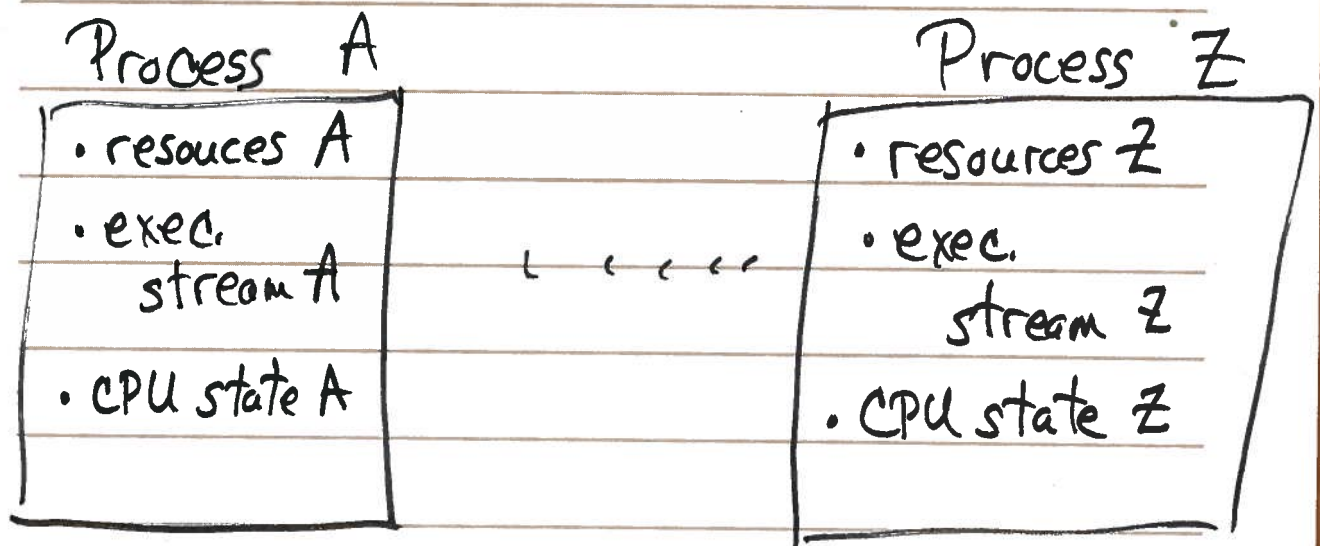 Process A
• resouces A
• exec.
stream A
• CPU state A
.....
Process Z
• resources Z
• exec.
stream Z
• CPU state Z